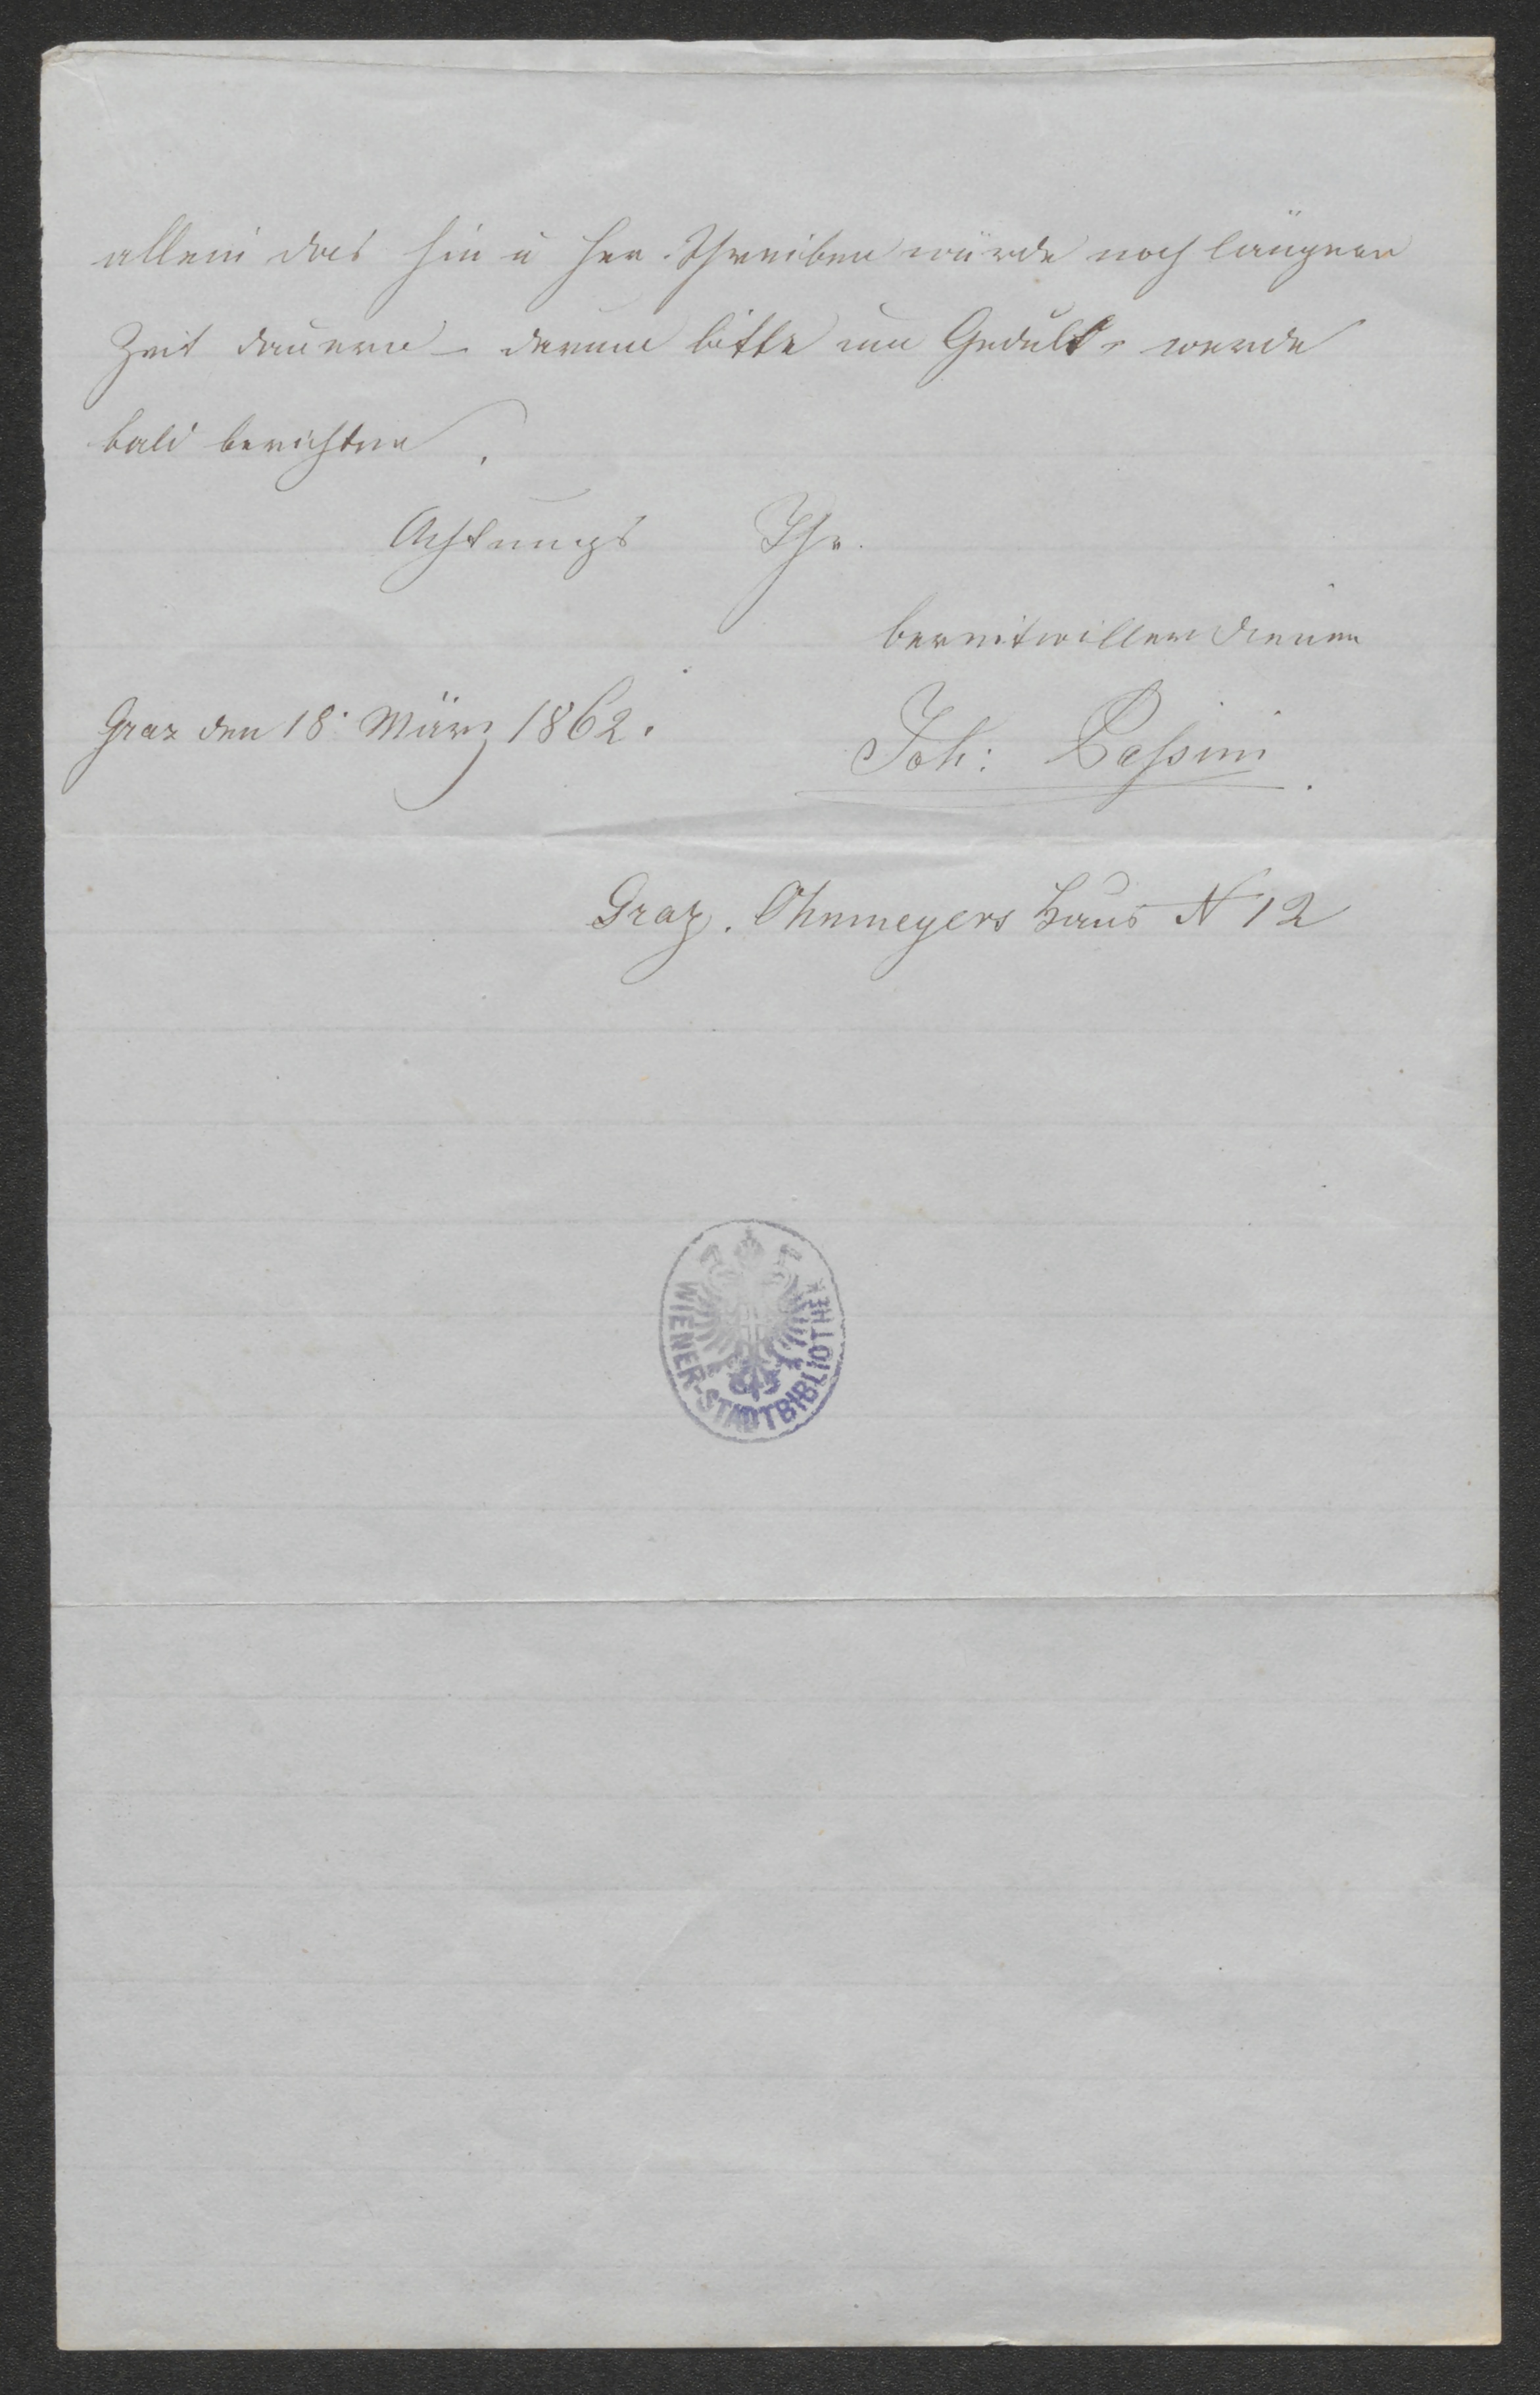 allein das hin u her. Schreiben würde noch längere
Zeit dauern – darum bitte um Gedult – werde
bald berichten.
Achtungs Ihr.
bereitwilliger Diener
Graz den 18. März 1862.
Joh: Passini.
Graz. Ohnmeyers Haus N 12
WIENER-STADTBIBLIOTHEK